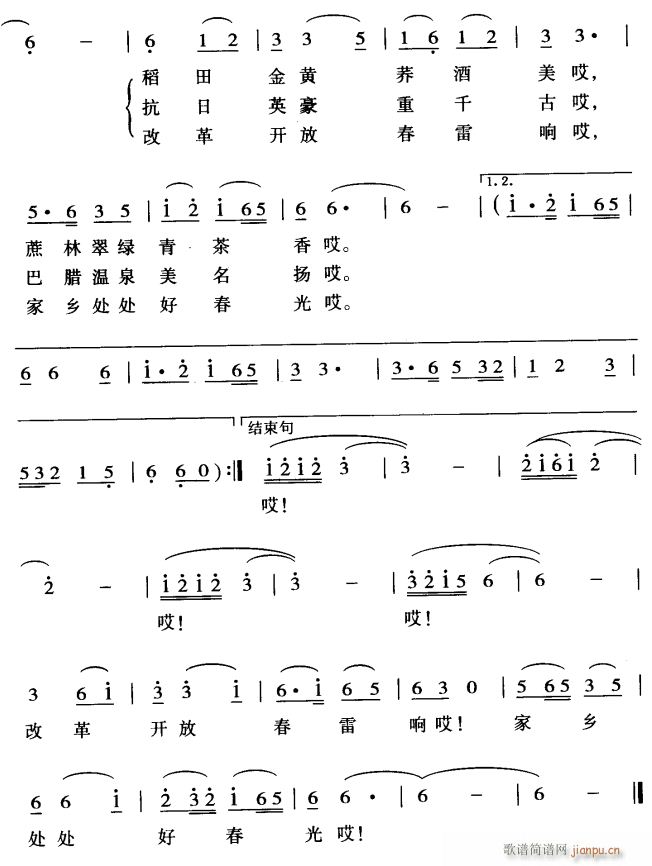 6 - | 6 1 2 | 3 3 5 | 1 6 1 2 | 3 3· |
稻田 金黄 荞酒 美哎,
抗日 英豪 重千 古哎,
改革 开放 春雷 响哎,
1.2.
5· 6 3 5 | i 2 i 65 | 6 6· | 6 - | (i· 2 i 65 |
蔗林翠绿青茶 香哎。
巴腊温泉美名 扬哎。
家乡处处好春 光哎。
6 6 6 | i· 2 i 65 | 3 3· | 3· 6 5 32 | 1 2 3 |
结束句
532 1 5 | 6 60) :| i2i2 3 | 3 - | 2i6i 2 |
哎!
2 - | i2i2 3 | 3 - | 32i5 6 | 6 - |
哎! 哎!
3 6 i | 3 3 i | 6· i 6 5 | 6 3 0 | 5 65 3 5 |
改革 开放 春雷 响哎! 家乡
6 6 i | 2 32 i 65 | 6 6· | 6 - | 6 - ‖
处处 好春 光哎!
歌谱简谱网
jianpu.cn